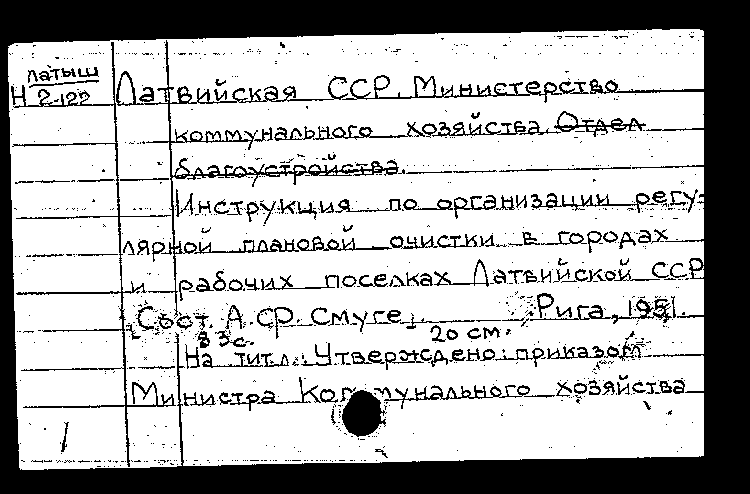 латыш
Н 2-122
Латвийская ССР. Министерство
коммунального хозяйства. Отдел
благоустройства.
Инструкция по организации регу-
лярной плановой очистки в городах
и рабочих поселках Латвийской ССР
[Сост. А. Ф. Смуге]. Рига, 1951.
83 с. 20 см.
На тит. л.: Утверждено: приказом
Министра Коммунального хозяйства